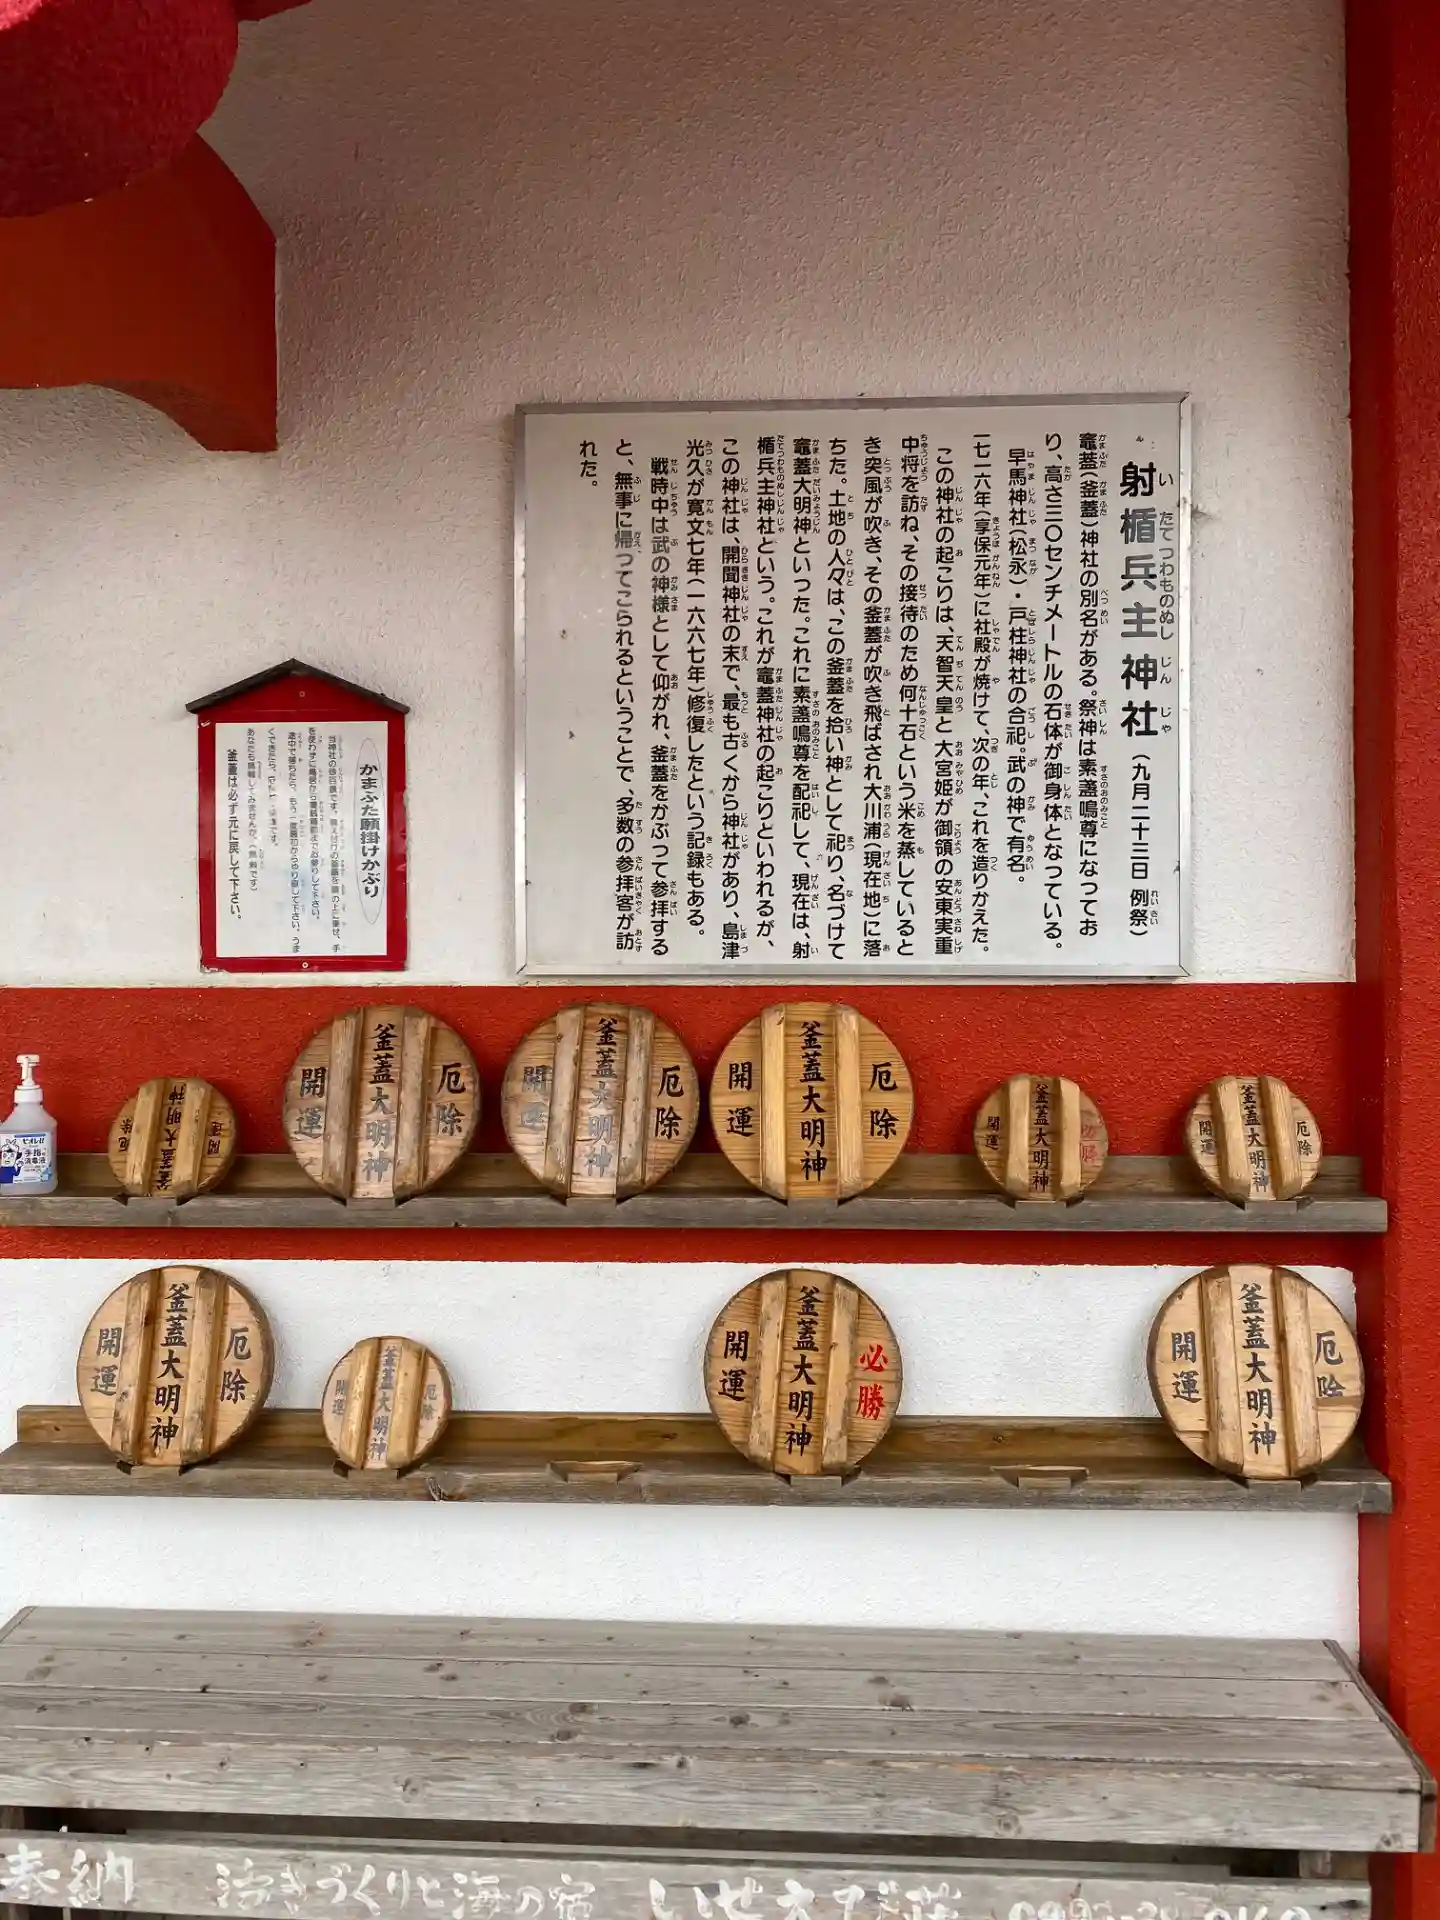 射楯兵主神社(九月二十三日 例祭)
竈蓋(釜蓋)神社の別名がある。祭神は素盞嗚尊になってお
り、高さ三〇センチメートルの石体が御身体となっている。
早馬神社(松永)・戸柱神社の合祀。武の神で有名。
一七一六年(享保元年)に社殿が焼けて、次の年、これを造りかえた。
この神社の起こりは、天智天皇と大宮姫が御領の安東実重
中将を訪ね、その接待のため何十石という米を蒸していると
き突風が吹き、その釜蓋が吹き飛ばされ大川浦(現在地)に落
ちた。土地の人々は、この釜蓋を拾い神として祀り、名づけて
竈蓋大明神といった。これに素盞嗚尊を配祀して、現在は、射
楯兵主神社という。これが竈蓋神社の起こりといわれるが、
この神社は、開聞神社の末で、最も古くから神社があり、島津
光久が寛文七年(一六六七年)修復したという記録もある。
戦時中は武の神様として仰がれ、釜蓋をかぶって参拝する
と、無事に帰ってこられるということで、多数の参拝客が訪
れた。
かまふた願掛けかぶり
当神社の釜蓋を頭の上に乗せ、手
を使わずに鳥居から賽銭箱前までお参りして下さい。
途中で落ちたら、もう一度最初からやり直して下さい。うま
くできたら、
あなたも挑戦してみませんか。(無料です)
釜蓋は必ず元に戻して下さい。
手指
消毒液
厄除
釜蓋大明神
開運
厄除
釜蓋大明神
開運
厄除
釜蓋大明神
開運
厄除
釜蓋大明神
開運
必勝
釜蓋大明神
開運
厄除
釜蓋大明神
開運
厄除
釜蓋大明神
開運
厄除
釜蓋大明神
開運
必勝
釜蓋大明神
開運
厄除
釜蓋大明神
開運
奉納 活きづくりと海の宿 いせエビ荘